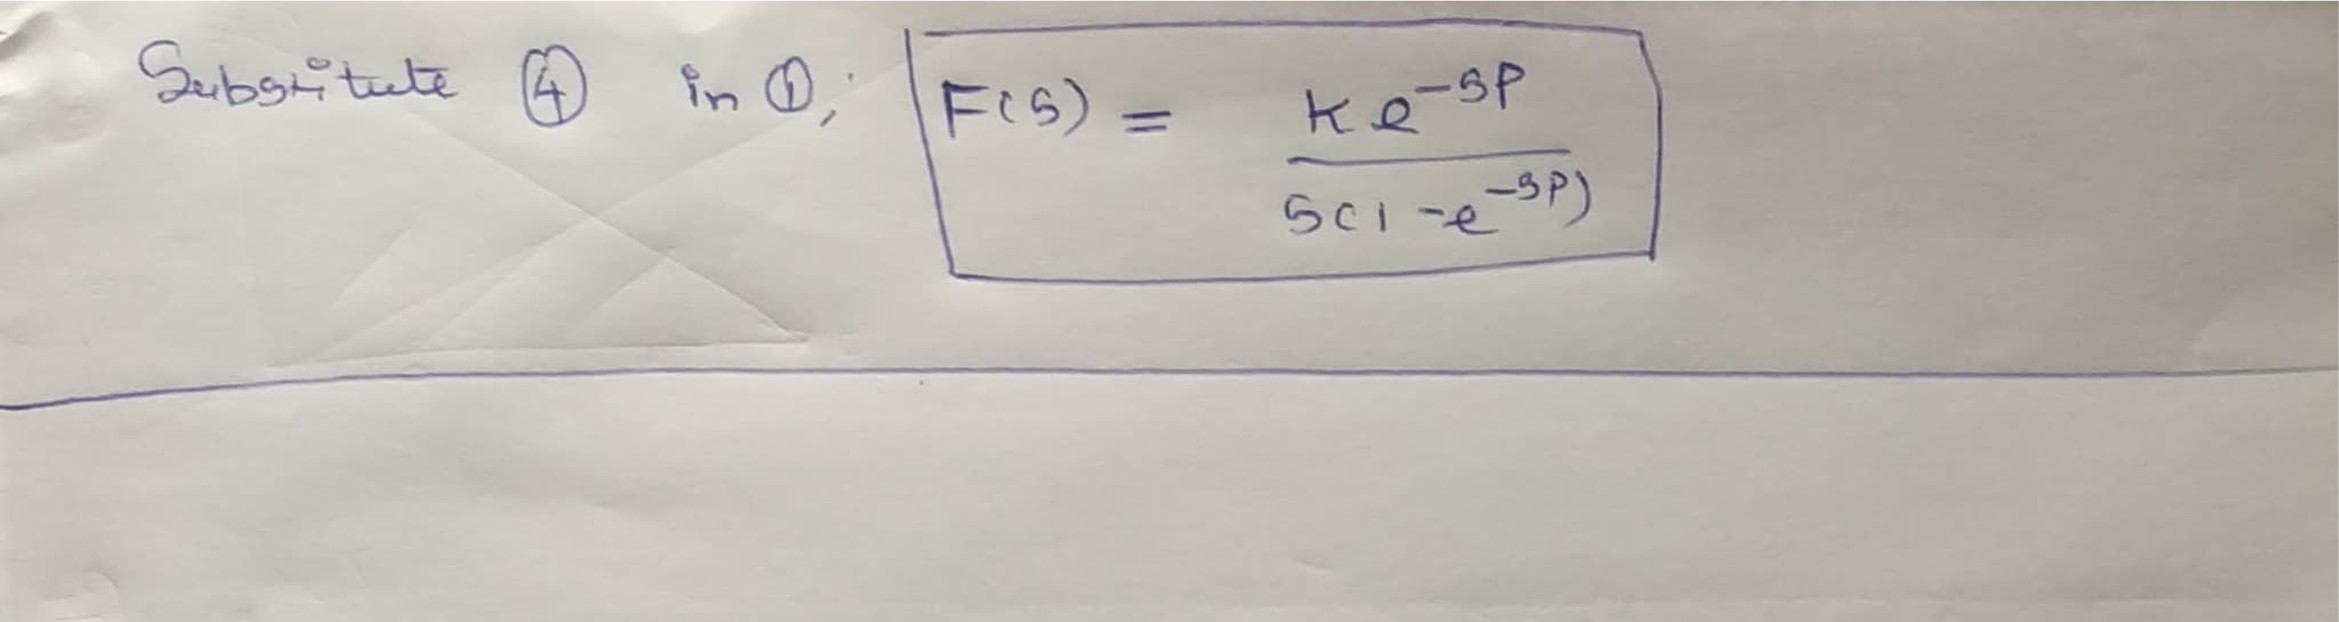 Substitute ④ in ①, F(s) = k e^{-sp} / s(1 - e^{-sp})